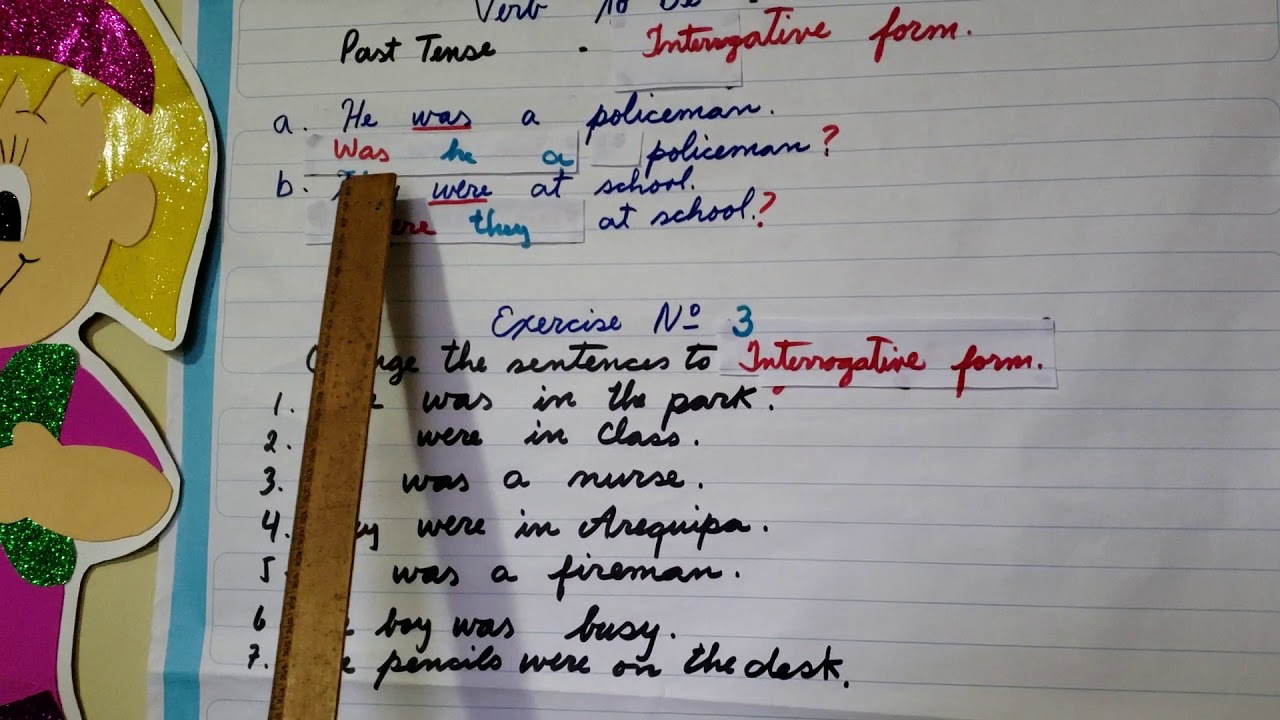 Verb To Be
Past Tense . Interrogative form.
a. He was a policeman.
Was he a policeman?
b. were at school.
they at school.?
Exercise Nº 3
the sentences to Interrogative form.
1. was in the park.
2. were in class.
3. was a nurse.
4. were in Arequipa.
5 was a fireman.
6 boy was busy.
7. pencils were on the desk.